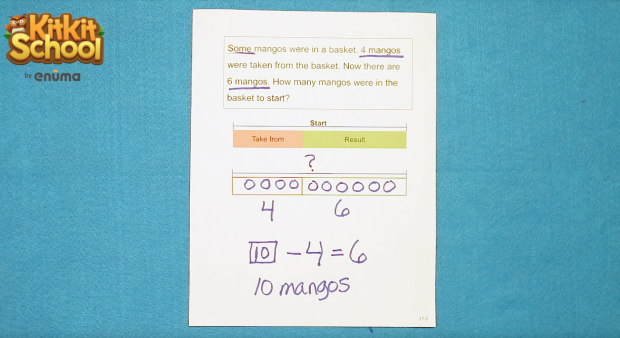 Kitkit
School
by enuma
Some mangos were in a basket. 4 mangos
were taken from the basket. Now there are
6 mangos. How many mangos were in the
basket to start?
Start
Take from Result
?
4 6
10 - 4 = 6
10 mangos